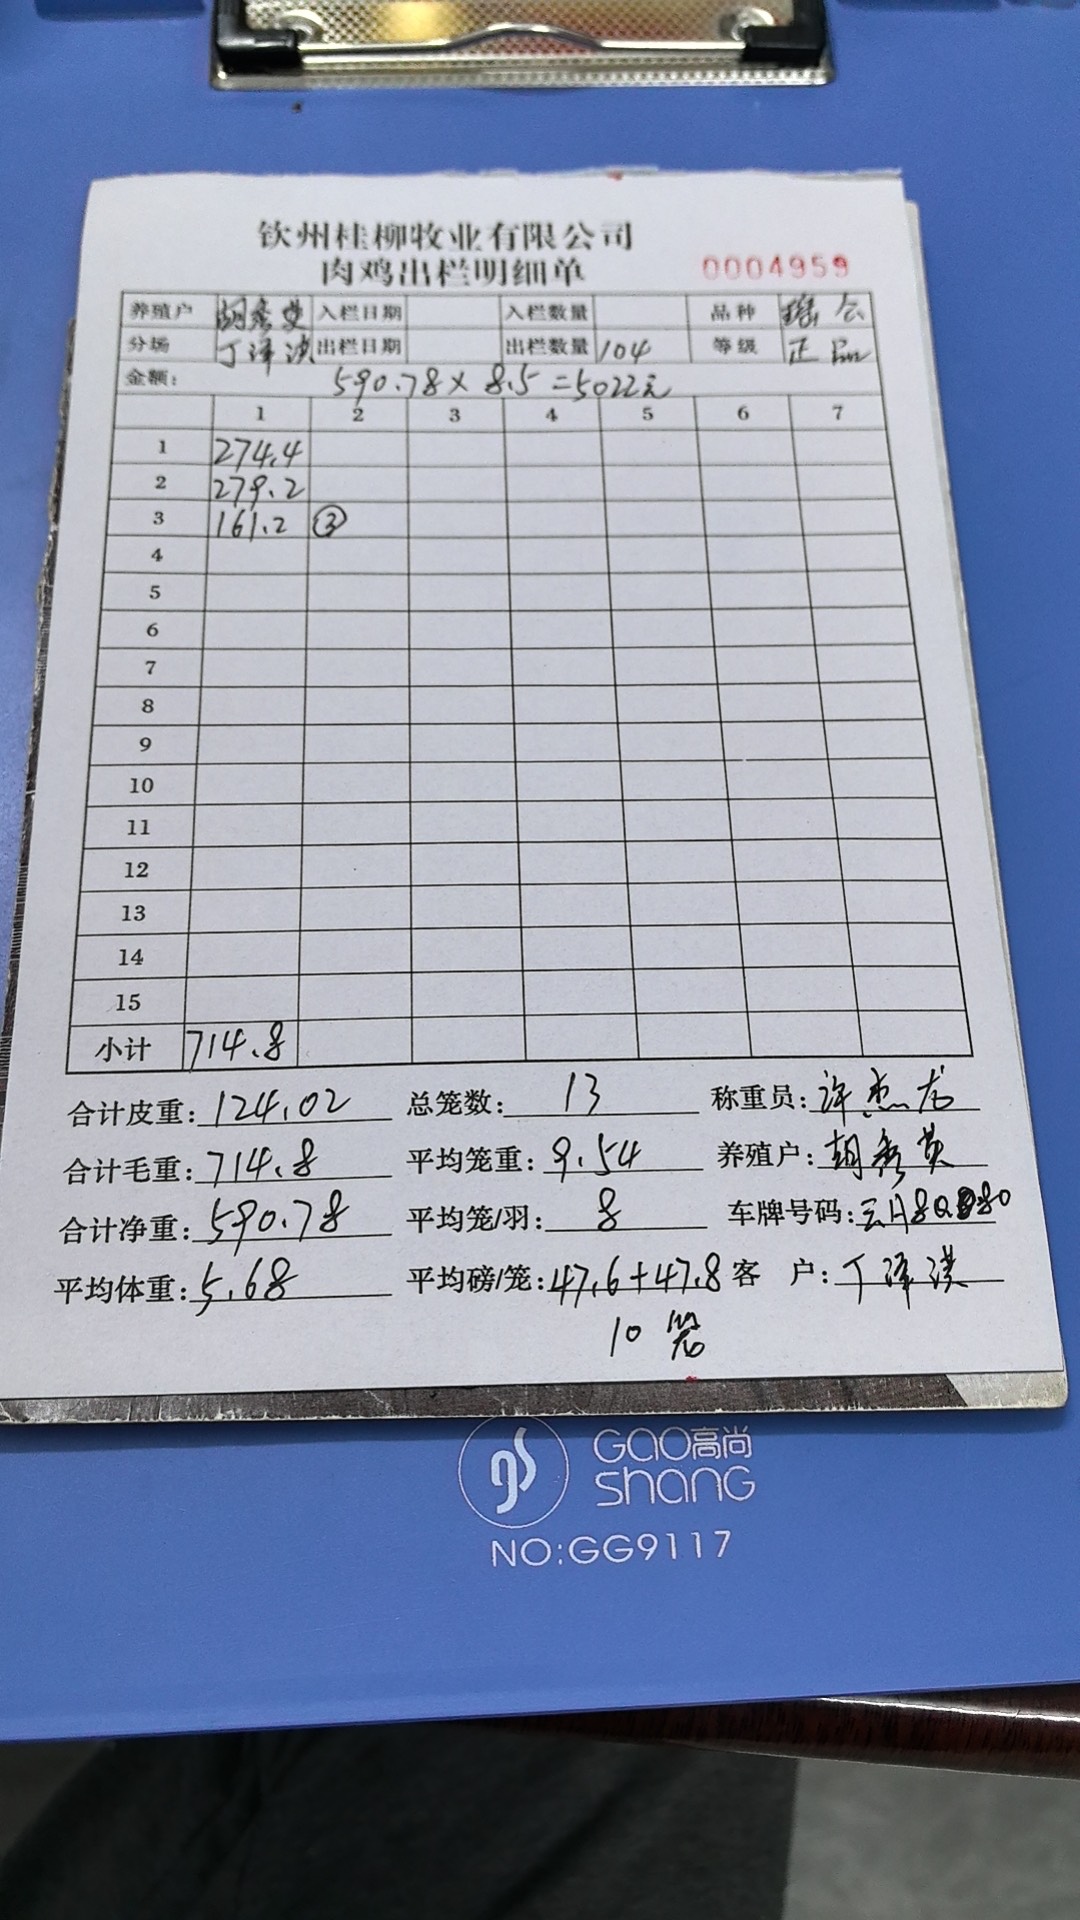 钦州桂柳牧业有限公司
肉鸡出栏明细单 0004959
养殖户 胡秀英 入栏日期 入栏数量 品种
分场 丁泽洪 出栏日期 出栏数量 104 等级 正品
金额: 590.78×8.5=5022元
1 2 3 4 5 6 7
1 274.4
2 279.2
3 161.2 ③
4
5
6
7
8
9
10
11
12
13
14
15
小计 714.8
合计皮重: 124.02 总笼数: 13 称重员: 许杰龙
合计毛重: 714.8 平均笼重: 9.54 养殖户: 胡秀英
合计净重: 590.78 平均笼/羽: 8 车牌号码:
平均体重: 5.68 平均磅/笼: 47.6+47.8 客 户: 丁泽洪
10 笼
GAO高尚
shang
NO:GG9117